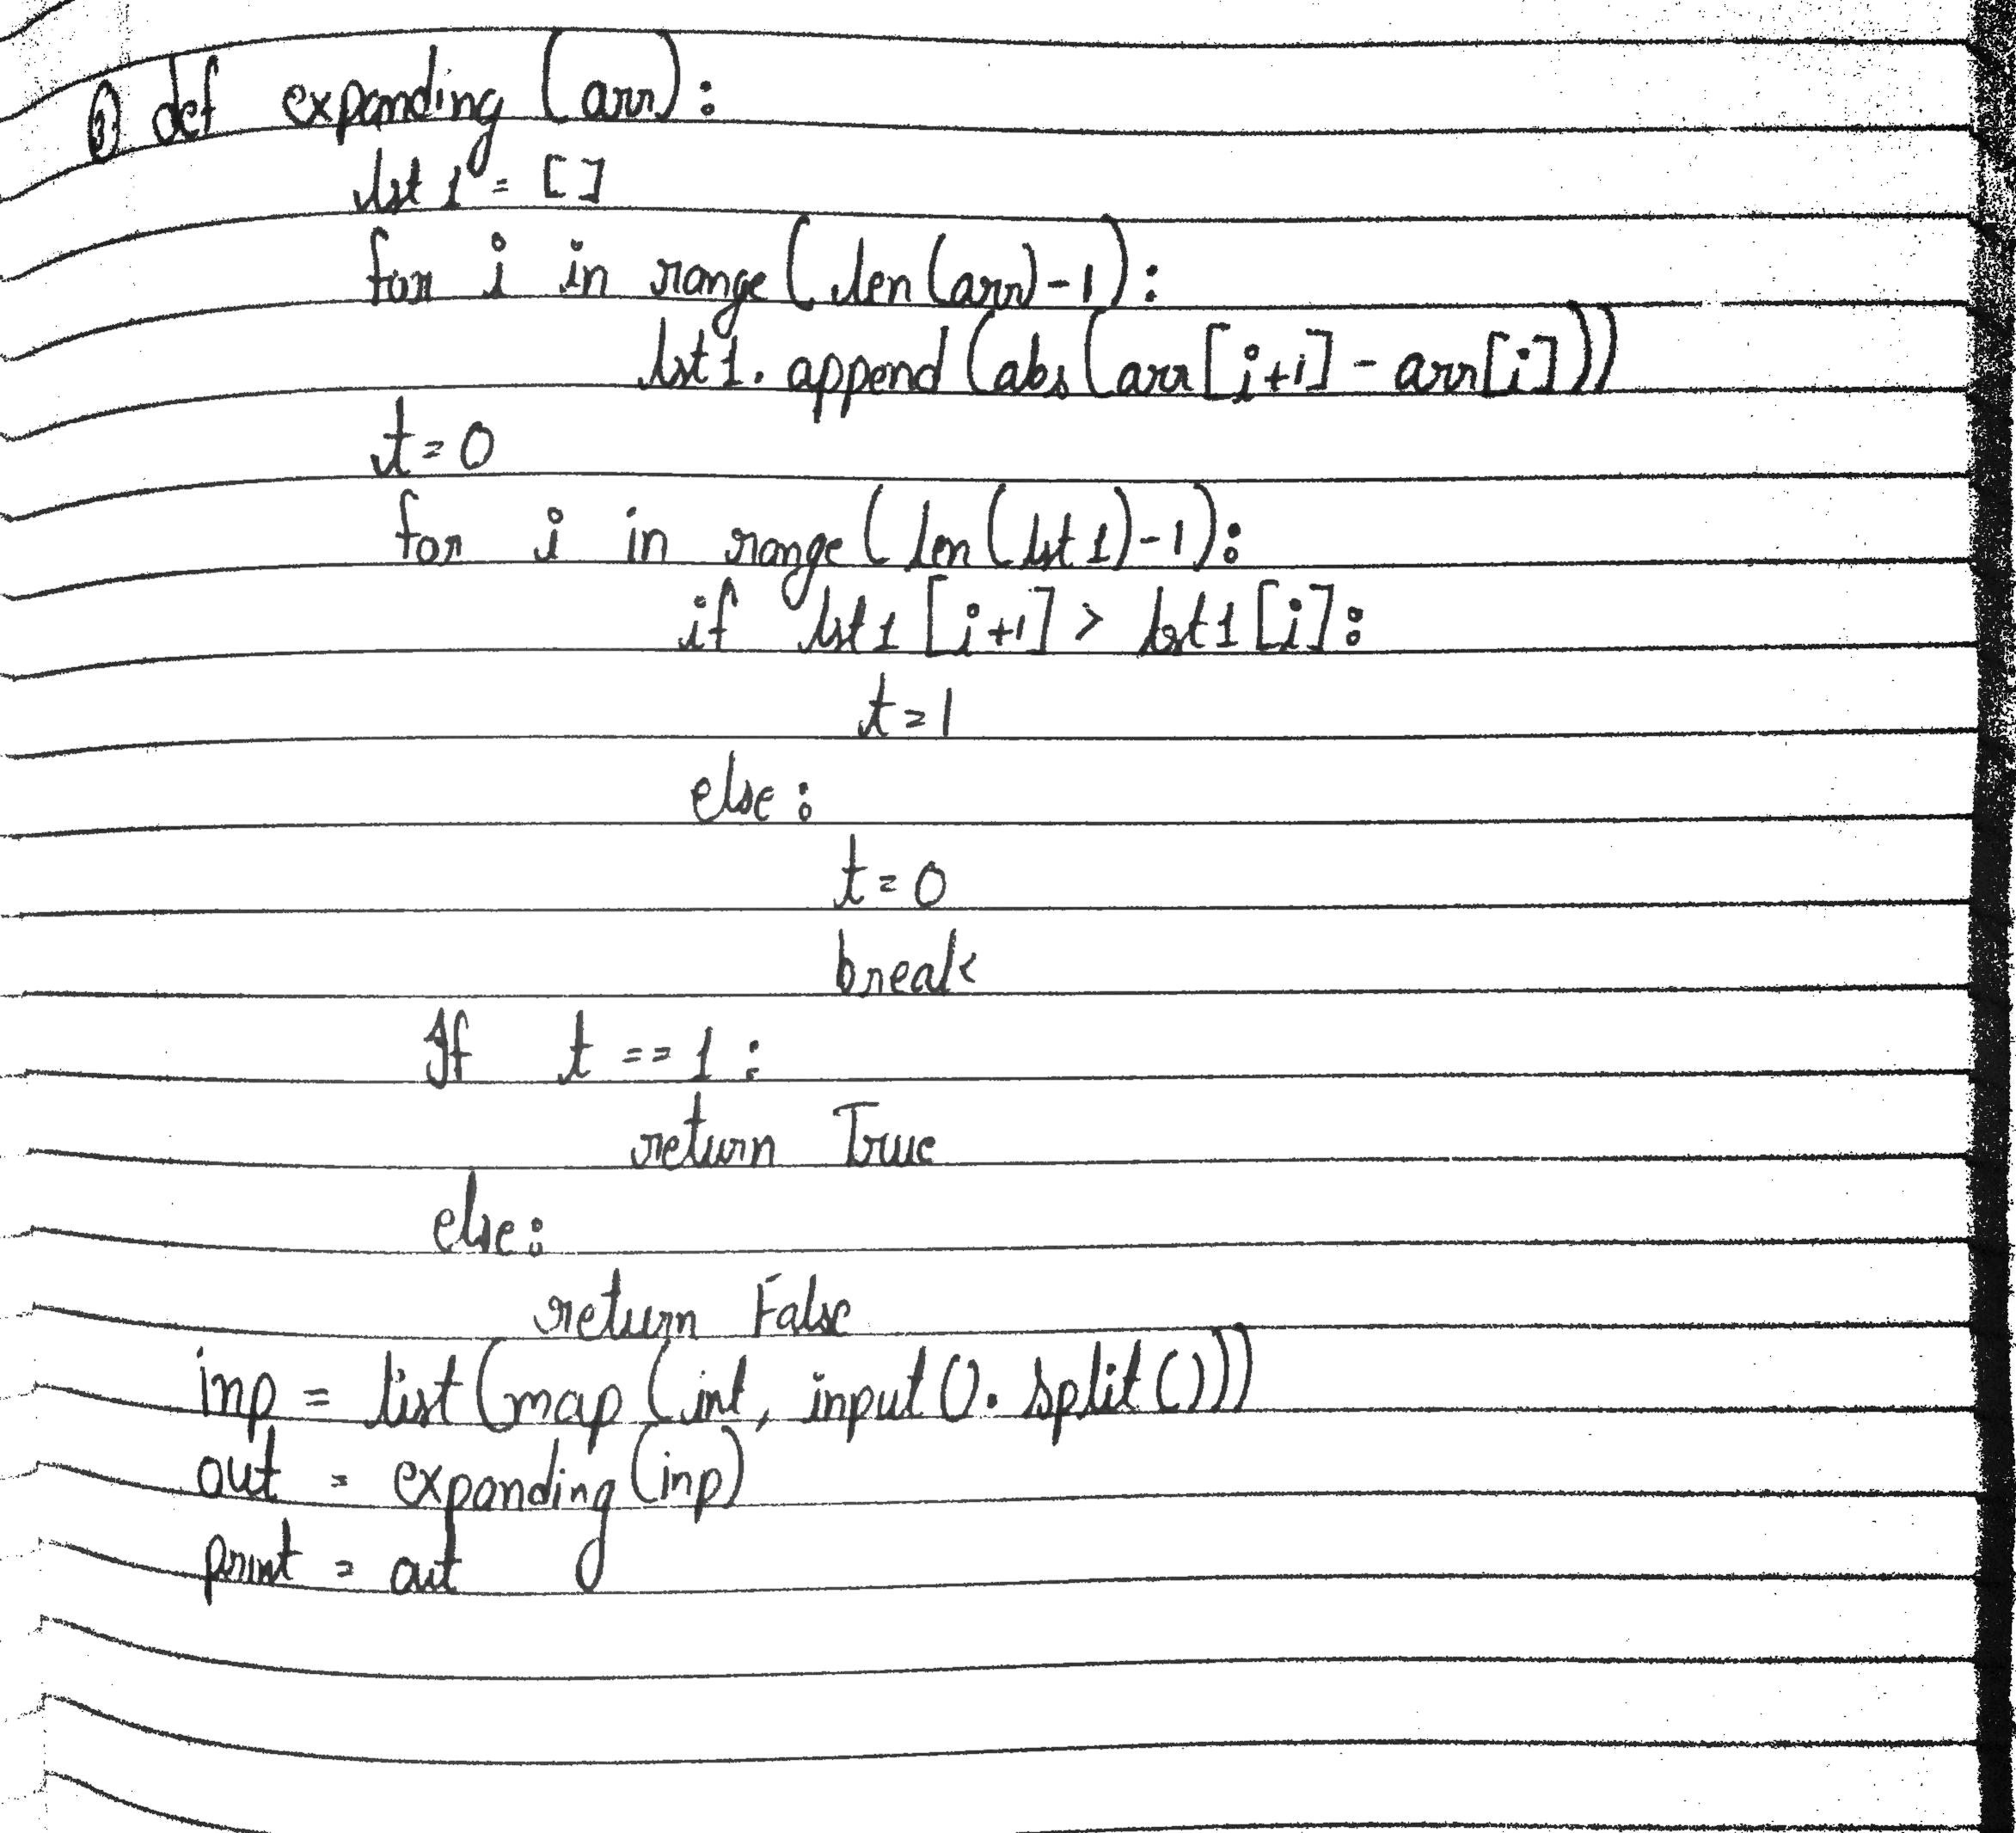 ③ def expanding (arr):
lst1 = []
for i in range(len(arr)-1):
lst1.append(abs(arr[i+1] - arr[i]))
t=0
for i in range(len(lst1)-1):
if lst1[i+1] > lst1[i]:
t=1
else:
t=0
break
If t == 1:
return True
else:
return False
inp = list(map(int, input().split()))
out = expanding(inp)
print = out